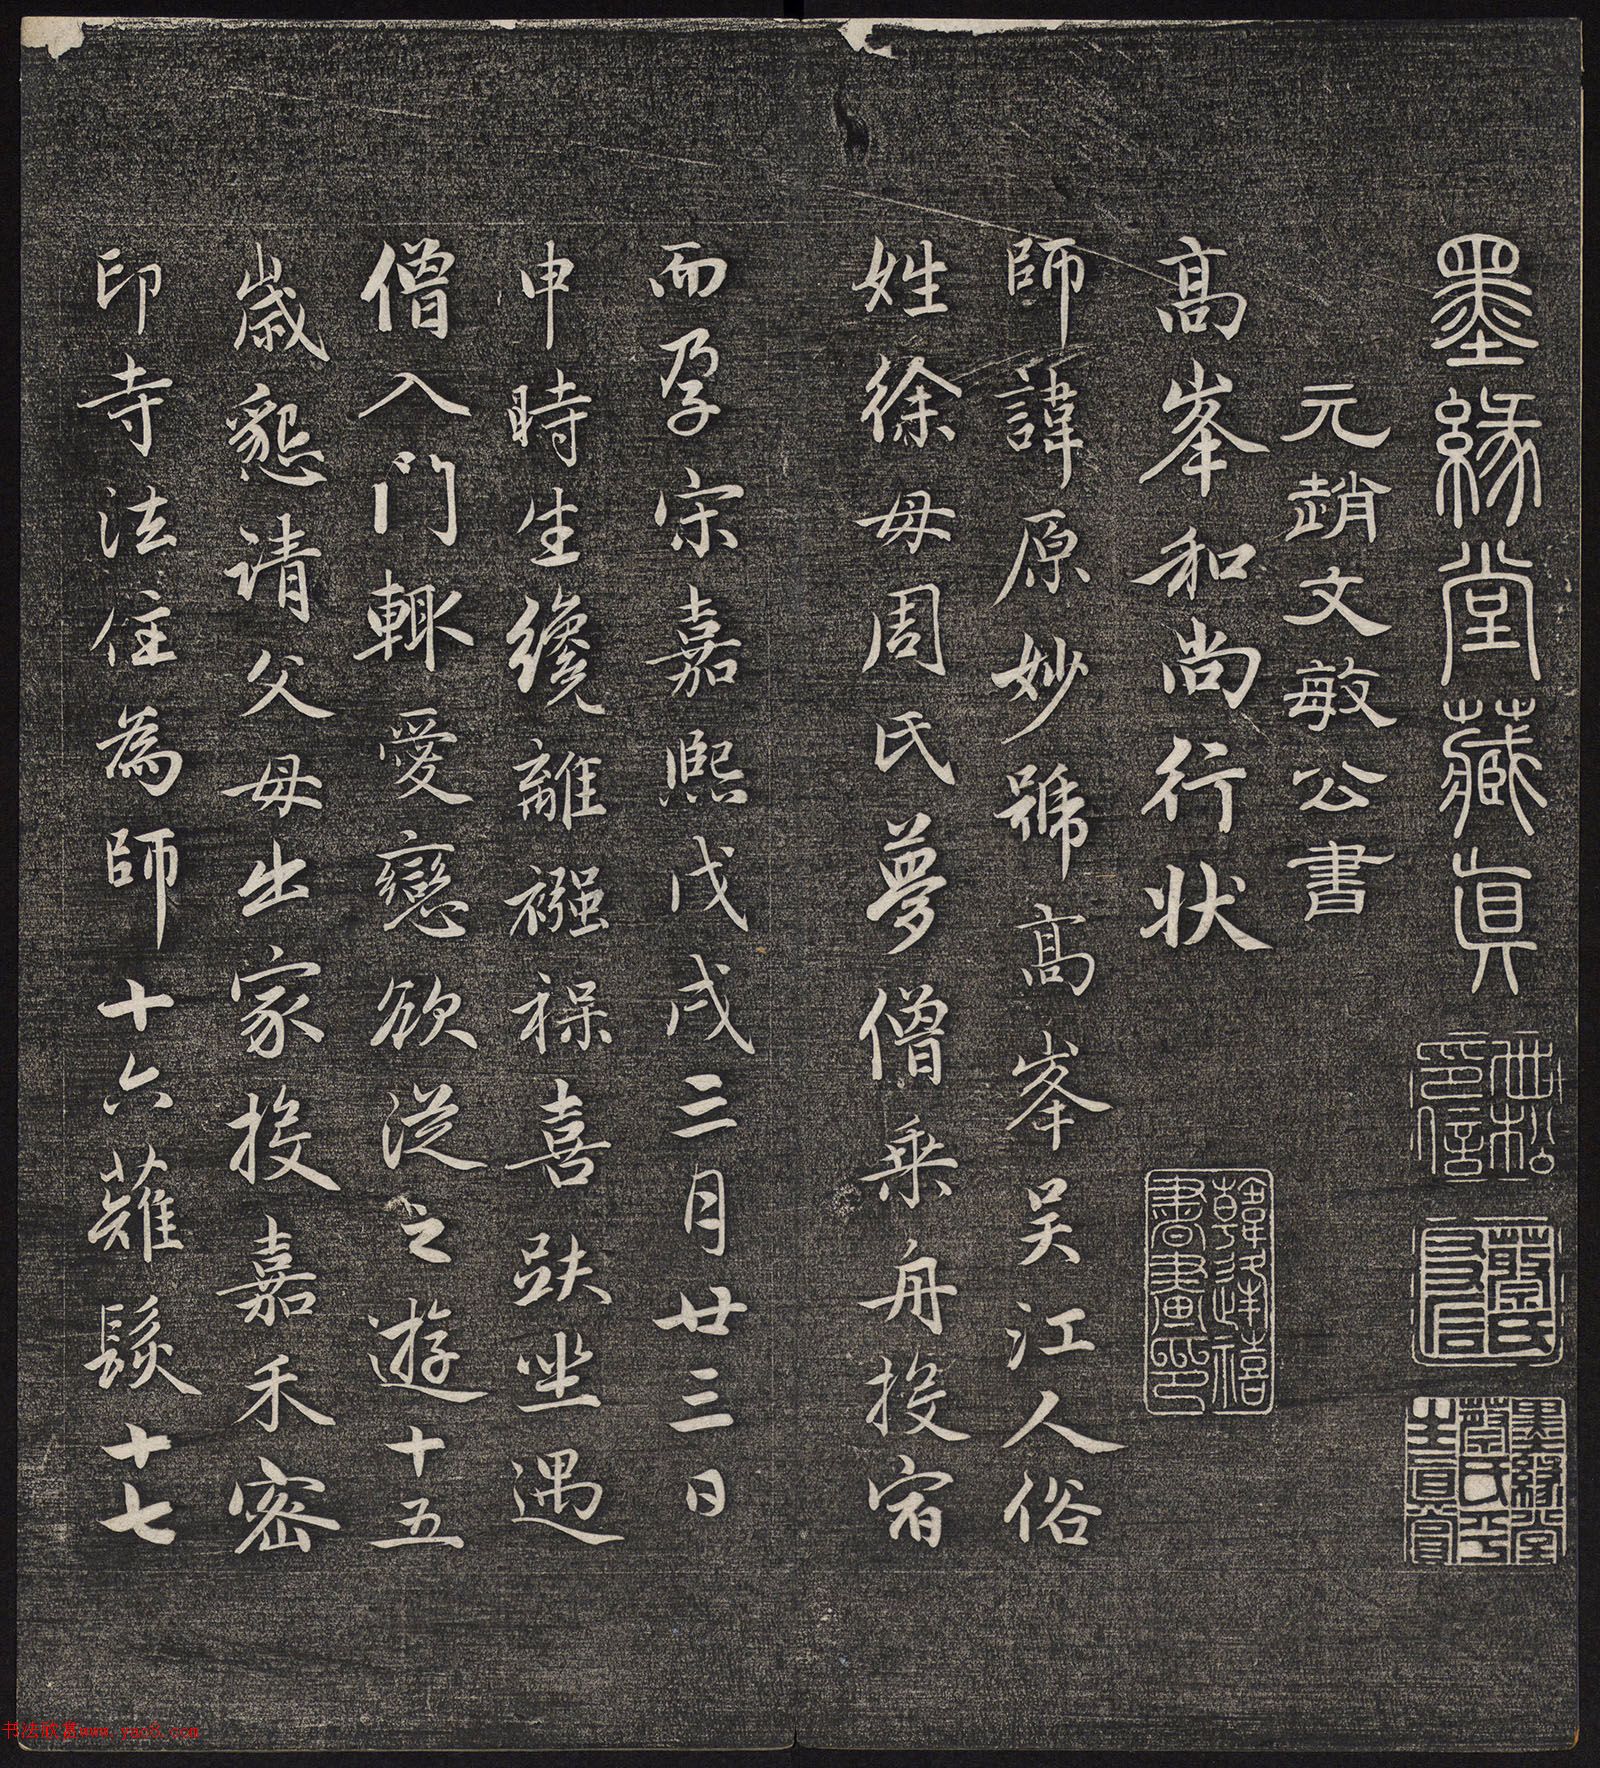 墨緣堂藏真
元趙文敏公書
高峯和尚行狀
師諱原妙號高峯吴江人俗
姓徐母周氏夢僧乗舟投宿
而孕宋嘉熙戊戌三月廿三日
申時生纔離襁褓喜趺坐遇
僧入門輒愛戀欲從之遊十五
歲懇請父母出家投嘉禾密
印寺法住為師十六薙髮十七
韓逢禧書畫印
www.yac8.com